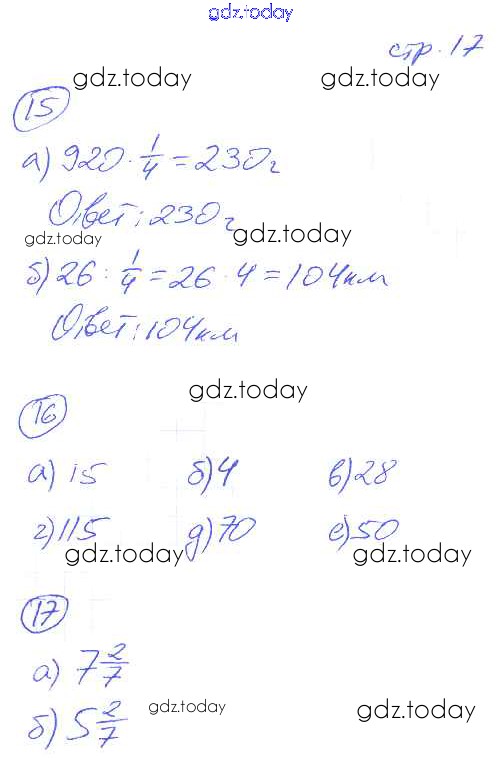 gdz.today
стр. 17
gdz.today gdz.today
15
а) 920 · 1/4 = 230 г
Ответ: 230 г
gdz.today gdz.today
б) 26 : 1/4 = 26 · 4 = 104 км
Ответ: 104 км
gdz.today
16
а) 15 б) 4 в) 28
г) 115 д) 70 е) 50
gdz.today gdz.today
17
а) 7 2/7
б) 5 2/7
gdz.today gdz.today